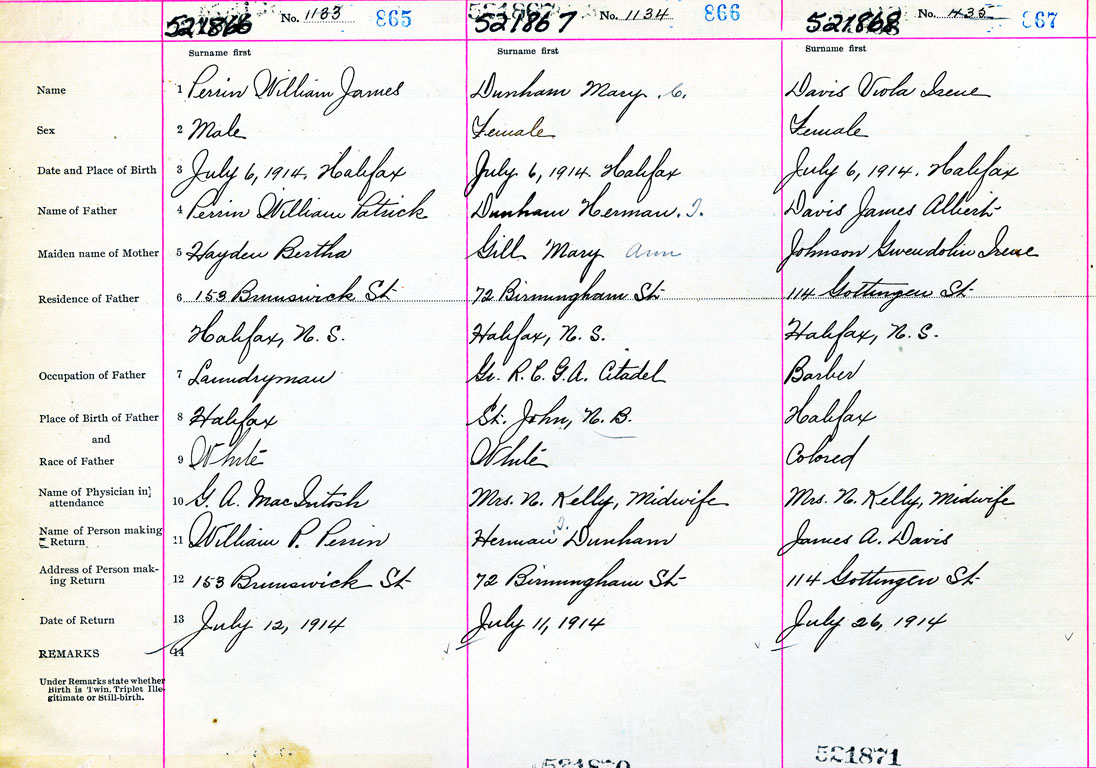 521866 No. 1133 865 521867 No. 1134 866 521868 No. 867
Surname first Surname first Surname first
Name 1 Perrin William James Dunham Mary .C. Davis Viola Irene
Sex 2 Male Female Female
Date and Place of Birth 3 July 6, 1914. Halifax July 6, 1914. Halifax July 6, 1914. Halifax
Name of Father 4 Perrin William Patrick Dunham Herman. I. Davis James Albert
Maiden name of Mother 5 Hayden Bertha Gill Mary Ann Johnson Gwendolin Irene
Residence of Father 6 153 Brunswick St 72 Birmingham St 114 Gottingen St
Halifax, N. S. Halifax, N. S. Halifax, N. S.
Occupation of Father 7 Laundryman Gr. R. C. G. A. Citadel Barber
Place of Birth of Father 8 Halifax St. John, N. B. Halifax
and
Race of Father 9 White White Colored
Name of Physician in attendance 10 G. A. MacIntosh Mrs. N. Kelly, Midwife Mrs. N. Kelly, Midwife
Name of Person making Return 11 William P. Perrin Herman I. Dunham James A. Davis
Address of Person mak-
ing Return 12 153 Brunswick St 72 Birmingham St 114 Gottingen St
Date of Return 13 July 12, 1914 July 11, 1914 July 26, 1914
REMARKS 14
Under Remarks state whether
Birth is Twin, Triplet Ille-
gitimate or Still-birth.
521871